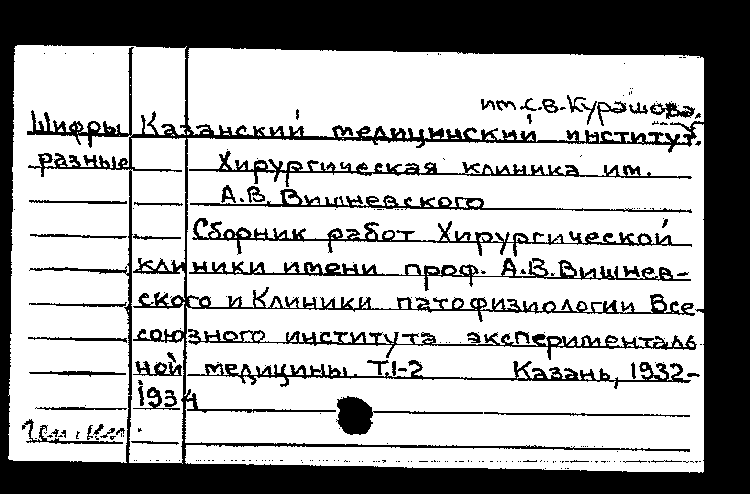 им. С.В. Курашова.
Шифры Казанский медицинский институт.
разные Хирургическая клиника им.
А.В. Вишневского
Сборник работ Хирургической
клиники имени проф. А.В. Вишнев-
ского и Клиники патофизиологии Все-
союзного института эксперименталь
ной медицины. Т.1-2 Казань, 1932-
1934